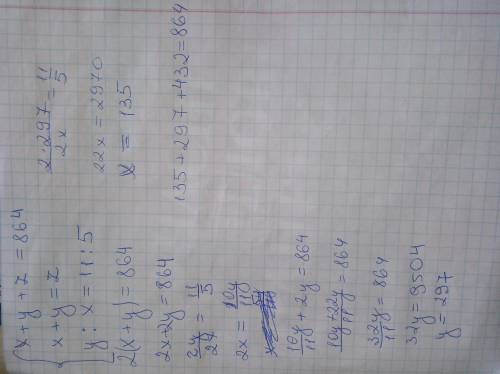 x+y+z=864
x+y=z
y:x=11:5
2(x+y)=864
2x+2y=864
2y/2x = 11/5
2x = 10y/11
10y/11 + 2y = 864
10y+22y/11 = 864
32y/11 = 864
32y=9504
y=297
2·297/2x = 11/5
22x=2970
x=135
135+297+432=864